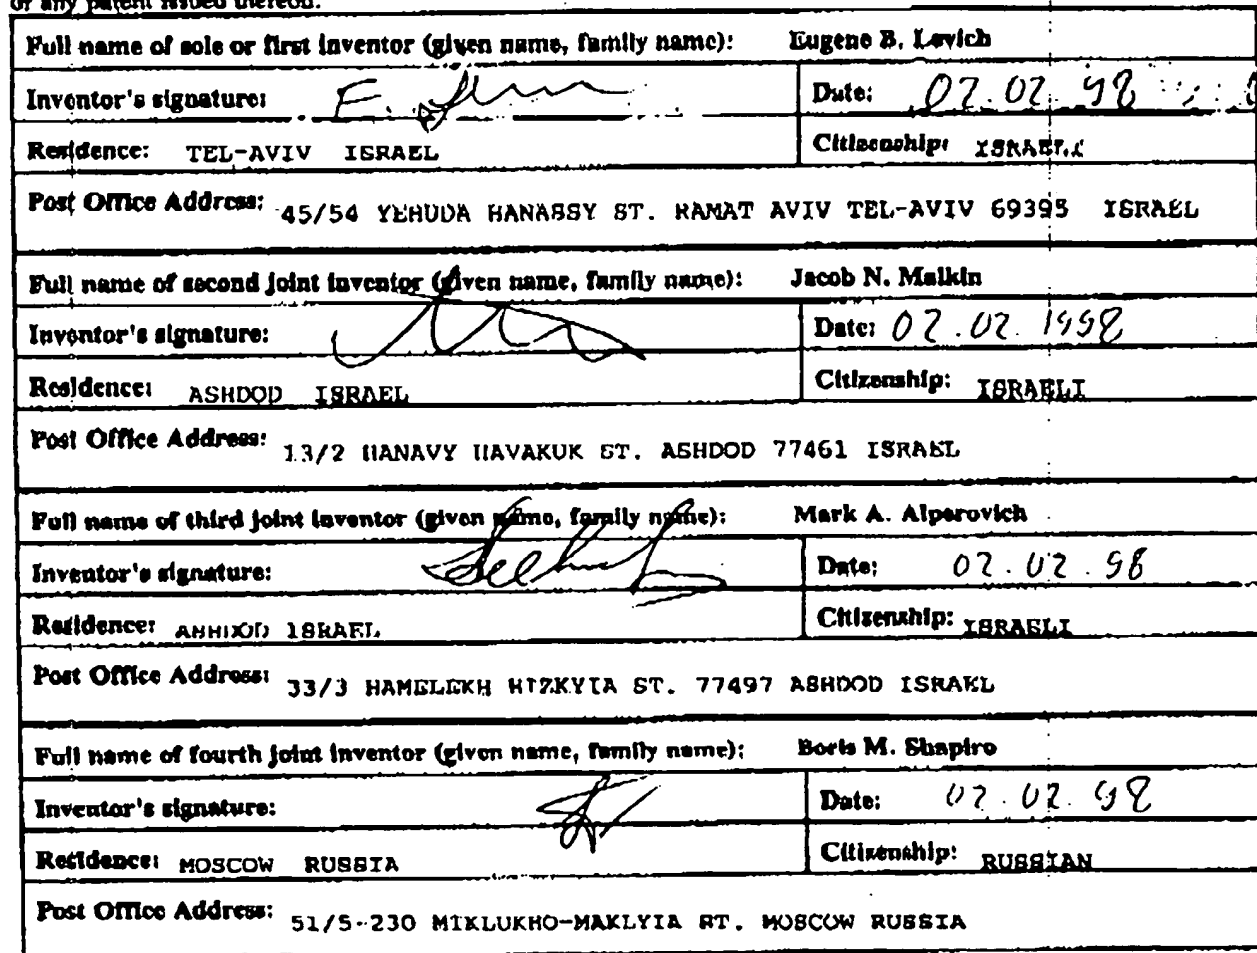 of any patent issued thereon.
Full name of sole or first inventor (given name, family name): Eugene B. Levich
Inventor's signature: Date: 02.02 98
Residence: TEL-AVIV ISRAEL Citizenship: ISRAELI
Post Office Address: 45/54 YEHUDA HANASSY ST. RAMAT AVIV TEL-AVIV 69395 ISRAEL
Full name of second joint inventor (given name, family name): Jacob N. Malkin
Inventor's signature: Date: 02.02.1998
Residence: ASHDOD ISRAEL Citizenship: ISRAELI
Post Office Address: 13/2 HANAVY HAVAKUK ST. ASHDOD 77461 ISRAEL
Full name of third joint inventor (given name, family name): Mark A. Alperovich
Inventor's signature: Date: 02.02.98
Residence: ASHDOD ISRAEL Citizenship: ISRAELI
Post Office Address: 33/3 HAMELEKH HIZKYIA ST. 77497 ASHDOD ISRAEL
Full name of fourth joint inventor (given name, family name): Boris M. Shapiro
Inventor's signature: Date: 02.02.98
Residence: MOSCOW RUSSIA Citizenship: RUSSIAN
Post Office Address: 51/5-230 MIKLUKHO-MAKLYIA ST. MOSCOW RUSSIA